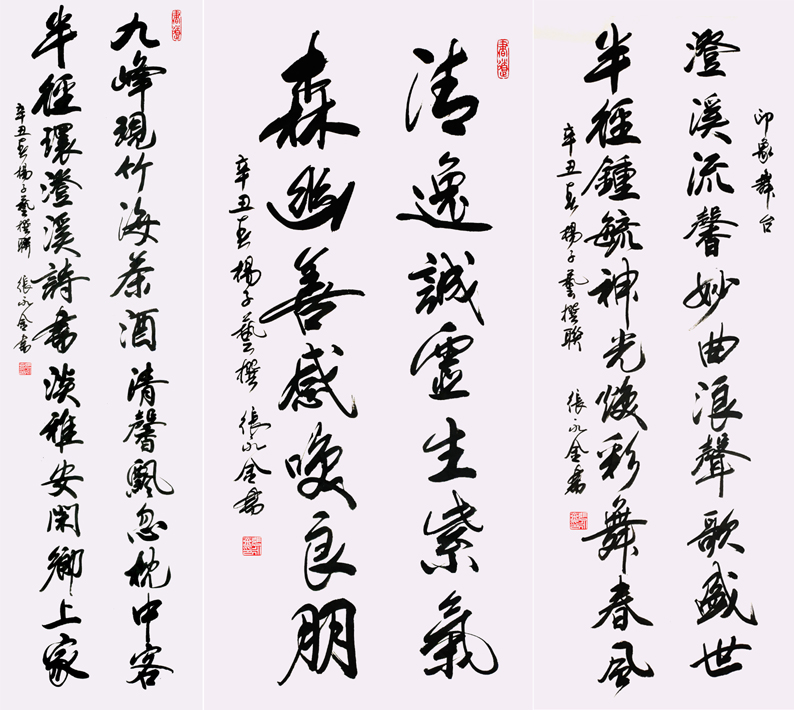 印象舞台
澄溪流馨妙曲浪聲歌盛世
半徑鍾毓神光煥彩舞春風
辛丑春楊子藝撰聯 張永金書
清逸誠靈生紫氣
森幽善感喚良朋
辛丑春楊子藝撰 張永金書
九峰現竹海茶酒清馨飄忽枕中客
半徑環澄溪詩書淡雅安閑鄉上家
辛丑春楊子藝撰聯 張永金書